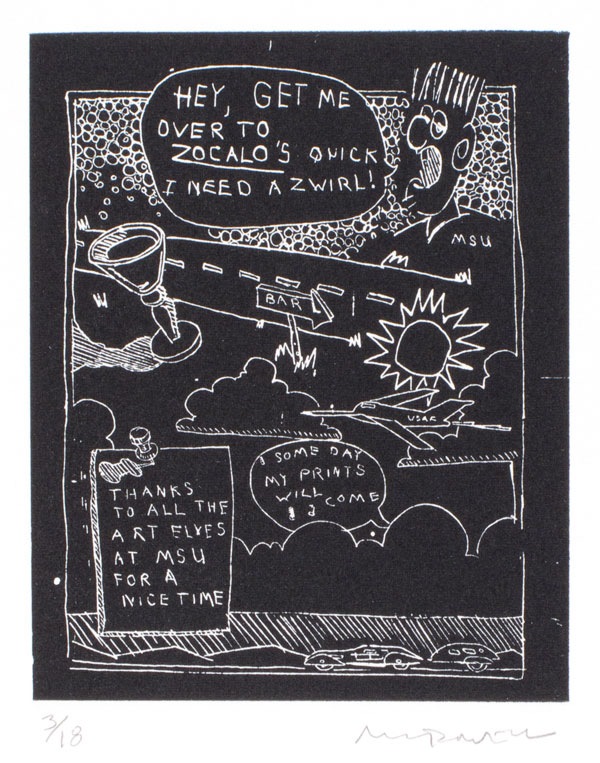 HEY, GET ME
OVER TO
ZOCALO'S QUICK
I NEED A ZWIRL!
MSU
BAR
USAF
SOME DAY
MY PRINTS
WILL
COME
THANKS
TO ALL THE
ART ELVES
AT MSU
FOR A
NICE TIME
3/18